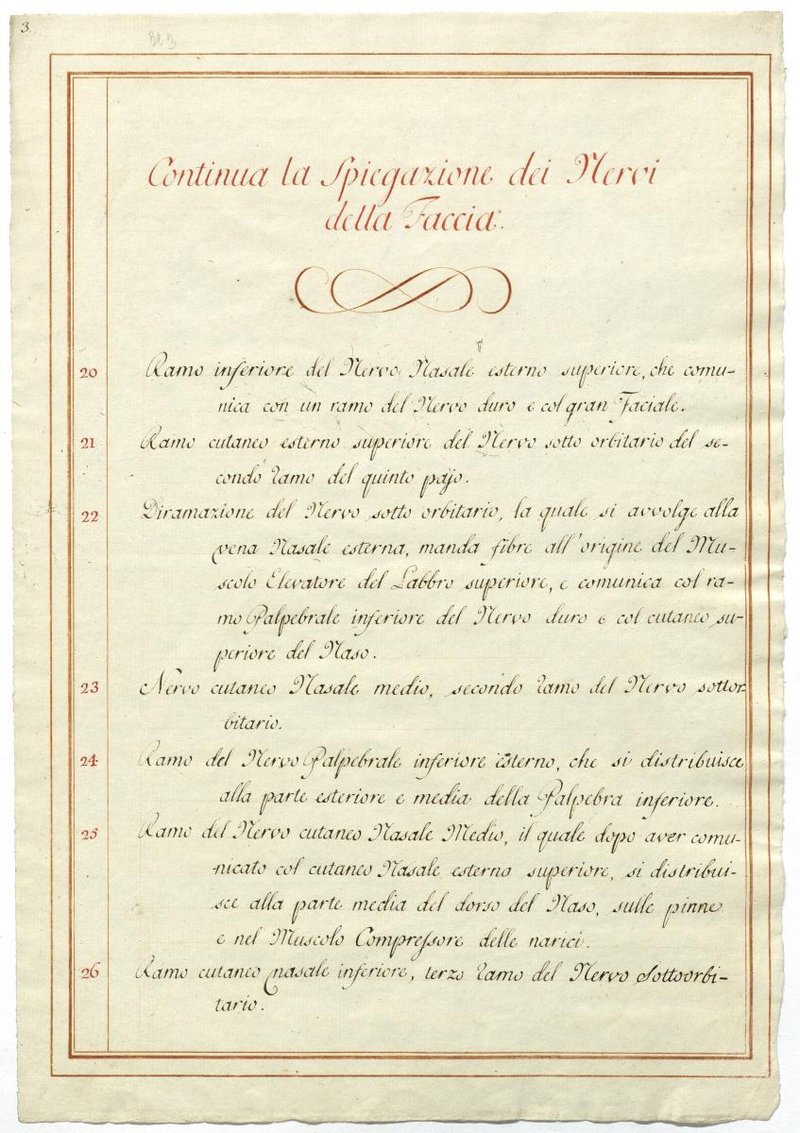 3.
Continua la Spiegazione dei Nervi
della Faccia.
20 Ramo inferiore del Nervo Nasale esterno superiore, che comu-
nica con un ramo del Nervo duro e col gran Faciale.
21 Ramo cutaneo esterno superiore del Nervo sotto orbitario del se-
condo ramo del quinto pajo.
22 Diramazione del Nervo sotto orbitario, la quale si avvolge alla
vena Nasale esterna, manda fibre all'origine del Mu-
scolo Elevatore del Labbro superiore, e comunica col ra-
mo Palpebrale inferiore del Nervo duro e col cutaneo su-
periore del Naso.
23 Nervo cutaneo Nasale medio, secondo ramo del Nervo sottor-
bitario.
24 Ramo del Nervo Palpebrale inferiore esterno, che si distribuisce
alla parte esteriore e media della Palpebra inferiore.
25 Ramo del Nervo cutaneo Nasale Medio, il quale dopo aver comu-
nicato col cutaneo Nasale esterno superiore, si distribui-
sce alla parte media del dorso del Naso, sulle pinne
e nel Muscolo Compressore delle narici.
26 Ramo cutaneo nasale inferiore, terzo ramo del Nervo Sottoorbi-
tario.